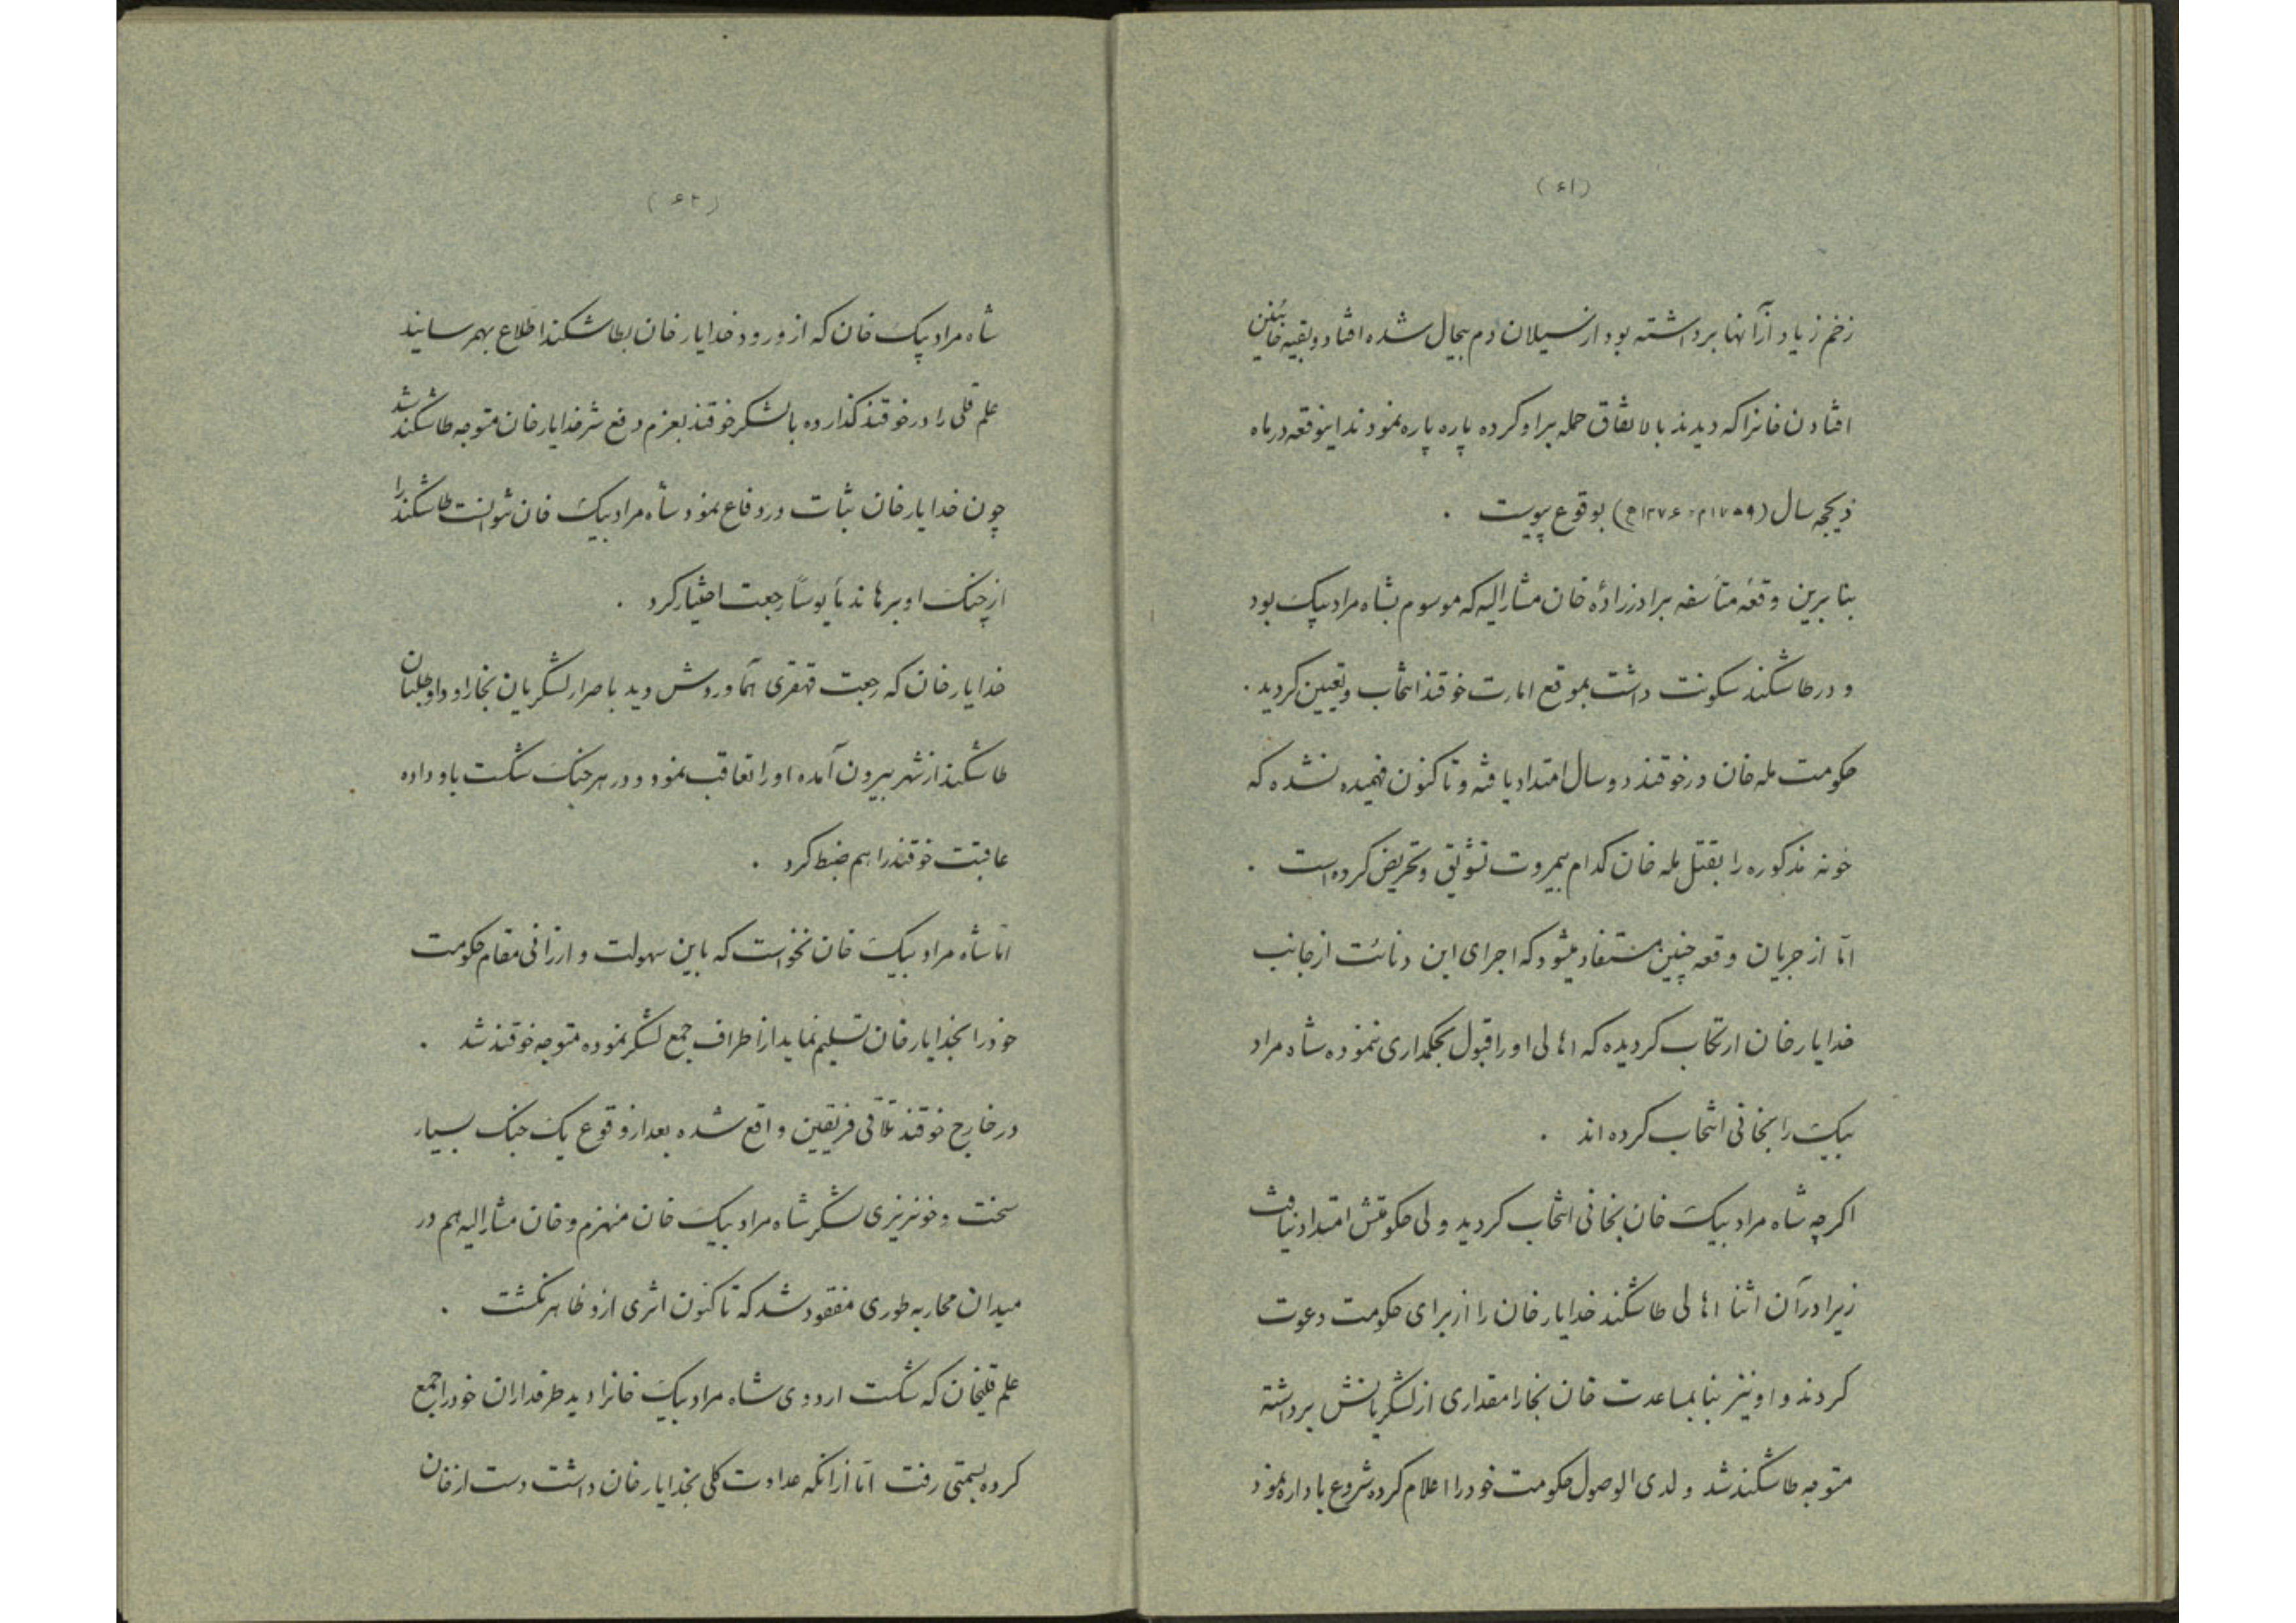 (۶۱)
زخم زیاد از آنها برداشته بود از سیلان دم بیحال شده افتاد و بقیه خائنین
افتادن خانرا که دیدند بالاتفاق حمله براو کرده پاره پاره نمودند اینوقعه درماه
ذیحجه سال (۱۷۵۹م-۱۲۷۶ه) بوقوع پیوست .
بنا برین وقعهٔ متأسفه برادرزادهٔ خان مشارالیه که موسوم بشاه مراد بیک بود
و در طاشکند سکونت داشت بموقع امارت خوقند انتخاب و تعیین کردید .
حکومت مله خان در خوقند دو سال امتداد یافته و تا کنون فهمیده نشده که
خونه مذکوره را بقتل مله خان کدام بیمروت تشویق و تحریض کرده است .
امّا از جریان وقعه چنین مستفاد میشود که اجرای این دنائت از جانب
خدایار خان ارتکاب کردیده که اهالی اورا قبول بحکمداری ننموده شاه مراد
بیک را بخانی انتخاب کرده اند .
اکرچه شاه مراد بیک خان بخانی انتخاب کردید ولی حکومتش امتداد نیافت
زیرا در آن اثنا اهالی طاشکند خدایار خان را از برای حکومت دعوت
کردند و او نیز بنا بمساعدت خان بخارا مقداری از لشکریانش برداشته
متوجه طاشکند شد و لدی الوصول حکومت خودرا اعلام کرده شروع باداره نمود
(۶۲)
شاه مراد بیک خان که از ورود خدایار خان بطاشکند اطلاع بهمرسانید
علم قلی را در خوقند کذارده با لشکر خوقند بعزم دفع شر خدایار خان متوجه طاشکند شد
چون خدایار خان ثبات در دفاع نمود شاه مراد بیک خان نتوانست طاشکند را
از چنک او برهاند مأیوساً رجعت اختیار کرد .
خدایار خان که رجعت قهقری آماوردش دید باصرار لشکریان بخارا و داوطلبان
طاشکند از شهر بیرون آمده اورا تعاقب نمود و در هر جنک شکست باو داده
عاقبت خوقند را هم ضبط کرد .
امّا شاه مراد بیک خان نخواست که باین سهولت و ارزانی مقام حکومت
خودرا بخدایار خان تسلیم نماید از اطراف جمع لشکر نموده متوجه خوقند شد .
در خارج خوقند تلاقی فریقین واقع شده بعد از وقوع یک جنک بسیار
سخت و خونریزی لشکر شاه مراد بیک خان منهزم و خان مشارالیه هم در
میدان محاربه طوری مفقود شد که تا کنون اثری ازو ظاهر نکشت .
علم قلیخان که شکست اردوی شاه مراد بیک خانرا دید طرفداران خودرا جمع
کرده بسمتی رفت امّا از آنکه عداوت کلی بخدایار خان داشت دست از خان